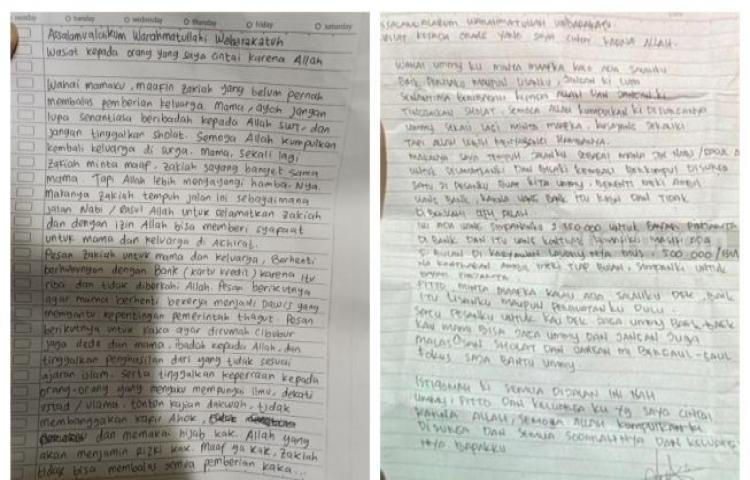 monday O tuesday O wednesday O thursday O friday O saturday
Assalamualaikum Warahmatullahi Wabarakatuh
Wasiat kepada orang yang saya cintai karena Allah
Wahai mamaku, maafin Zakiah yang belum pernah
membalas pemberian keluarga. Mama, ayah jangan
lupa senantiasa beribadah kepada Allah SWT, dan
jangan tinggalkan sholat. Semoga Allah kumpulkan
kembali keluarga di surga. Mama, sekali lagi
Zakiah minta maaf, Zakiah sayang banget sama
mama. Tapi Allah lebih menyayangi hamba-Nya.
Makanya Zakiah tempuh jalan ini sebagaimana
jalan Nabi / Rasul Allah untuk selamatkan Zakiah
dan dengan izin Allah bisa memberi syafaat
untuk mama dan keluarga di Achirat.
Pesan Zakiah untuk mama dan keluarga, Berhenti
berhubungan dengan Bank (kartu kredit) karena itu
riba dan tidak diberkahi Allah. Pesan berikutnya
agar mama berhenti bekerja menjadi Dawis yang
membantu kepentingan pemerintah thagut. Pesan
berikutnya untuk kaka agar dirumah cibubur
jaga dede dan mama, ibadah kepada Allah, dan
tinggalkan penghasilan dari yang tidak sesuai
ajaran islam. serta tinggalkan keperyaan kepada
orang-orang yang mengaku mempunyai ilmu, dekati
ustad / ulama, tonton kajian dakwah, tidak
membanggakan kafir Ahok,
dan memakai hijab kak. Allah yang
akan menjamin rizki kak. maaf ya kak, Zakiah
tidak bisa membalas semua pemberian kaka...
WARAHMATULLAH WABARAKATU
ORANG YANG SAYA CINTAI KARNA ALLAH.
WAHAI UMMY KU MINTA MAAFKA KALO ADA SALAHKU
BAIK PERILAKU MAUPUN LISANKU, JANGAN KI LUPA
SENANTIASA BERIBADAH KEPADA ALLAH DAN JANGAN KI
TINGGALKAN SHOLAT, SEMOGA ALLAH KUMPULKAN KI DI SURGANYA
UMMY SEKALI LAGI MINTA MAAFKA, KUSAYANG SEKALIKI
TAPI ALLAH LEBIH MENYAYANGI HAMBANYA.
MAKANYA SAYA TEMPUH JALANKU SEBAGAI MANA JLN NABI /
UNTUK SELAMATKANKI DAN BISAKI KEMBALI BERKUMPUL DISURGA
SATU JI PESANKU BUAT KITA UMMY, BERENTI MAKI AMBIL
UANG BANK, KARNA UANG BANK ITU RIBA DAN TIDAK
DIBERKAHI
INI ADA UANG SIMPANANKU 2.350.000 UNTUK BAYAR
DI BANK DAN ITU UANG MASIH ADA
500.000 /
TIAP BULAN, SIMPANKI UNTUK
BAYAR
PITTO, MINTA MAAFKA KALAU ADA SALAHKU DEK, BAIK
ITU LISANKU MAUPUN PERBUATANKU DULU.
SATU PESANKU UNTUK KAU DEK JAGA UMMY BAIK-BAIK
KAU MAMI BISA JAGA UMMY DAN JANGAN JUGA
MALAS SHOLAT DAN JANGAN MI BERGAUL-GAUL
FOKUS SAJA BANTU UMMY
ISTIQOMAH KI SEMUA DIJALAN INI NAH
UMMY, PITTO DAN KELUARGA KU YG SAYA CINTAI
KARENA ALLAH, SEMOGA ALLAH KUMPULKAN KI
DISURGA DAN SEMUA DAN KELUARGA
NYA BAPAKKU